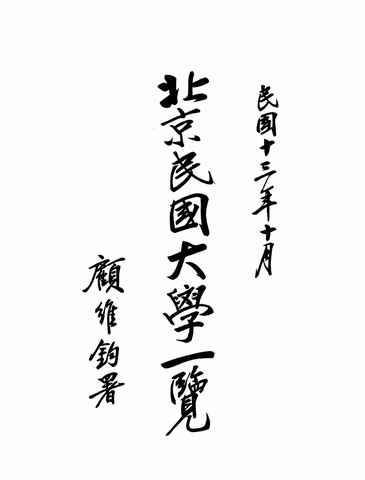 民國十三年十月
北京民國大學一覽
顧維鈞署